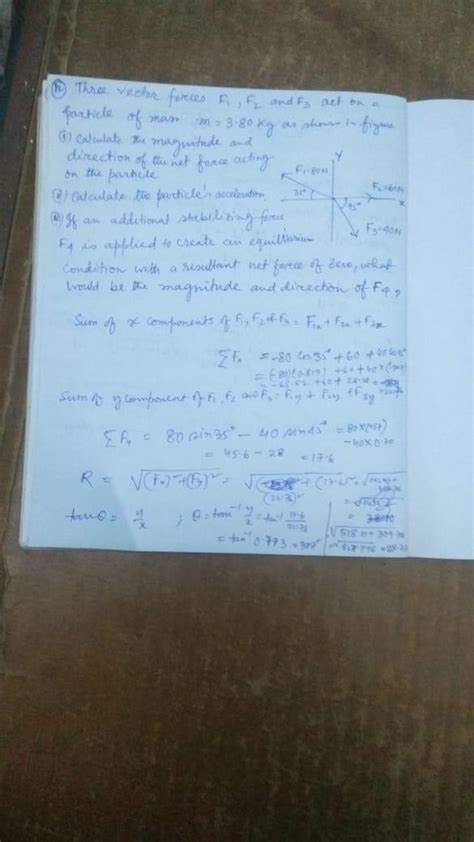 Three vector forces F1, F2 and F3 act on a
particle of mass m = 3.80 kg as shown in figure
(i) Calculate the magnitude and
direction of the net force acting
on the particle
Y
F1=80N
35°
F2=60N
x
45°
F3=40N
(ii) Calculate the particle's acceleration
(iii) If an additional stabilizing force
F4 is applied to create an equilibrium
condition with a resultant net force of zero, what
would be the magnitude and direction of F4?
Sum of x components of F1, F2 & F3 = F1x + F2x + F3x
ΣFx = -80 cos35° + 60 + 40 cos45°
= (-80)(0.819) + 60 + 40 ×
= -65.52 + 60 + 28.28 =
Sum of y component of F1, F2 and F3 = F1y + F2y + F3y
ΣFy = 80 sin35° - 40 sin45° = 80×(
-40×0.70
= 45.6 - 28 = 17.6
R = √(Fx)²+(Fy)² = √ + (17.6)² =
(22.76)²
tanθ = y/x ; θ = tan⁻¹ y/x = tan⁻¹ 17.6/22.76
= tan⁻¹ 0.773 =